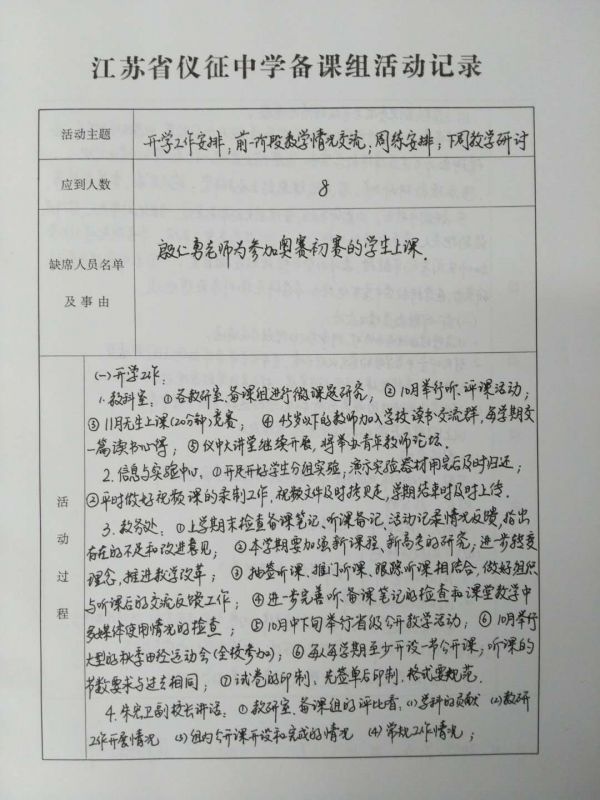 江苏省仪征中学备课组活动记录
活动主题
开学工作安排；前一阶段教学情况交流，周练安排；下周教学研讨
应到人数
8
缺席人员名单
及事由
殷仁勇老师为参加奥赛初赛的学生上课.
活动过程
(一)开学工作：
1.教科室：①各教研室、备课组进行微课题研究；②10月举行听、评课活动；
③11月无生上课(20分钟)竞赛；④45岁以下的教师加入学校读书交流群，每学期交
一篇读书心得；⑤仪中大讲堂继续开展，将举办青年教师论坛.
2.信息与实验中心：①开足开好学生分组实验，演示实验器材用完后及时归还；
②平时做好视频课的录制工作，视频文件及时拷贝走，学期结束时及时上传.
3.教务处：①上学期末检查备课笔记、听课备记、活动记录情况反馈，指出
存在的不足和改进意见；②本学期要加强新课程、新高考的研究，进一步转变
理念，推进教学改革；③抽签听课、推门听课、跟踪听课相结合，做好组织
与听课后的交流反馈工作；④进一步完善听、备课笔记的检查和课堂教学中
多媒体使用情况的检查；⑤10月中下旬举行省级公开教学活动；⑥10月举行
大型的秋季田径运动会(全校参加)；⑥每人每学期至少开设一节公开课，听课的
节数要求与过去相同；⑦试卷的印制，先签单后印制，格式要规范.
4.朱宏卫副校长讲话：①教研室、备课组的评比看：(1)学科的贡献 (2)教研
工作开展情况 (3)组内公开课开设和完成的情况 (4)常规工作情况；